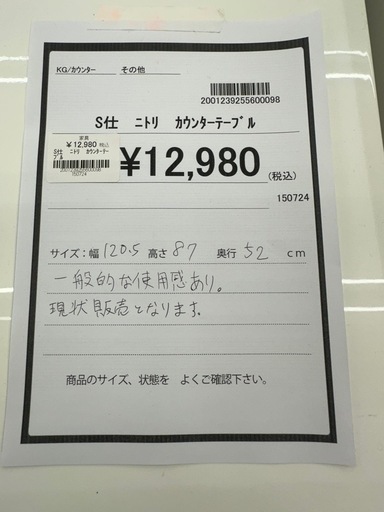 KG/カウンター　その他
2001239255600098
S仕　ニトリ　カウンターテーブル
家具
¥12,980 税込
S仕　ニトリ　カウンターテー
ブル
2001239255600098
150724
¥12,980 (税込)
150724
サイズ：幅 120.5 高さ 87 奥行 52 cm
一般的な使用感あり。
現状販売となります。
商品のサイズ、状態を　よくご確認下さい。